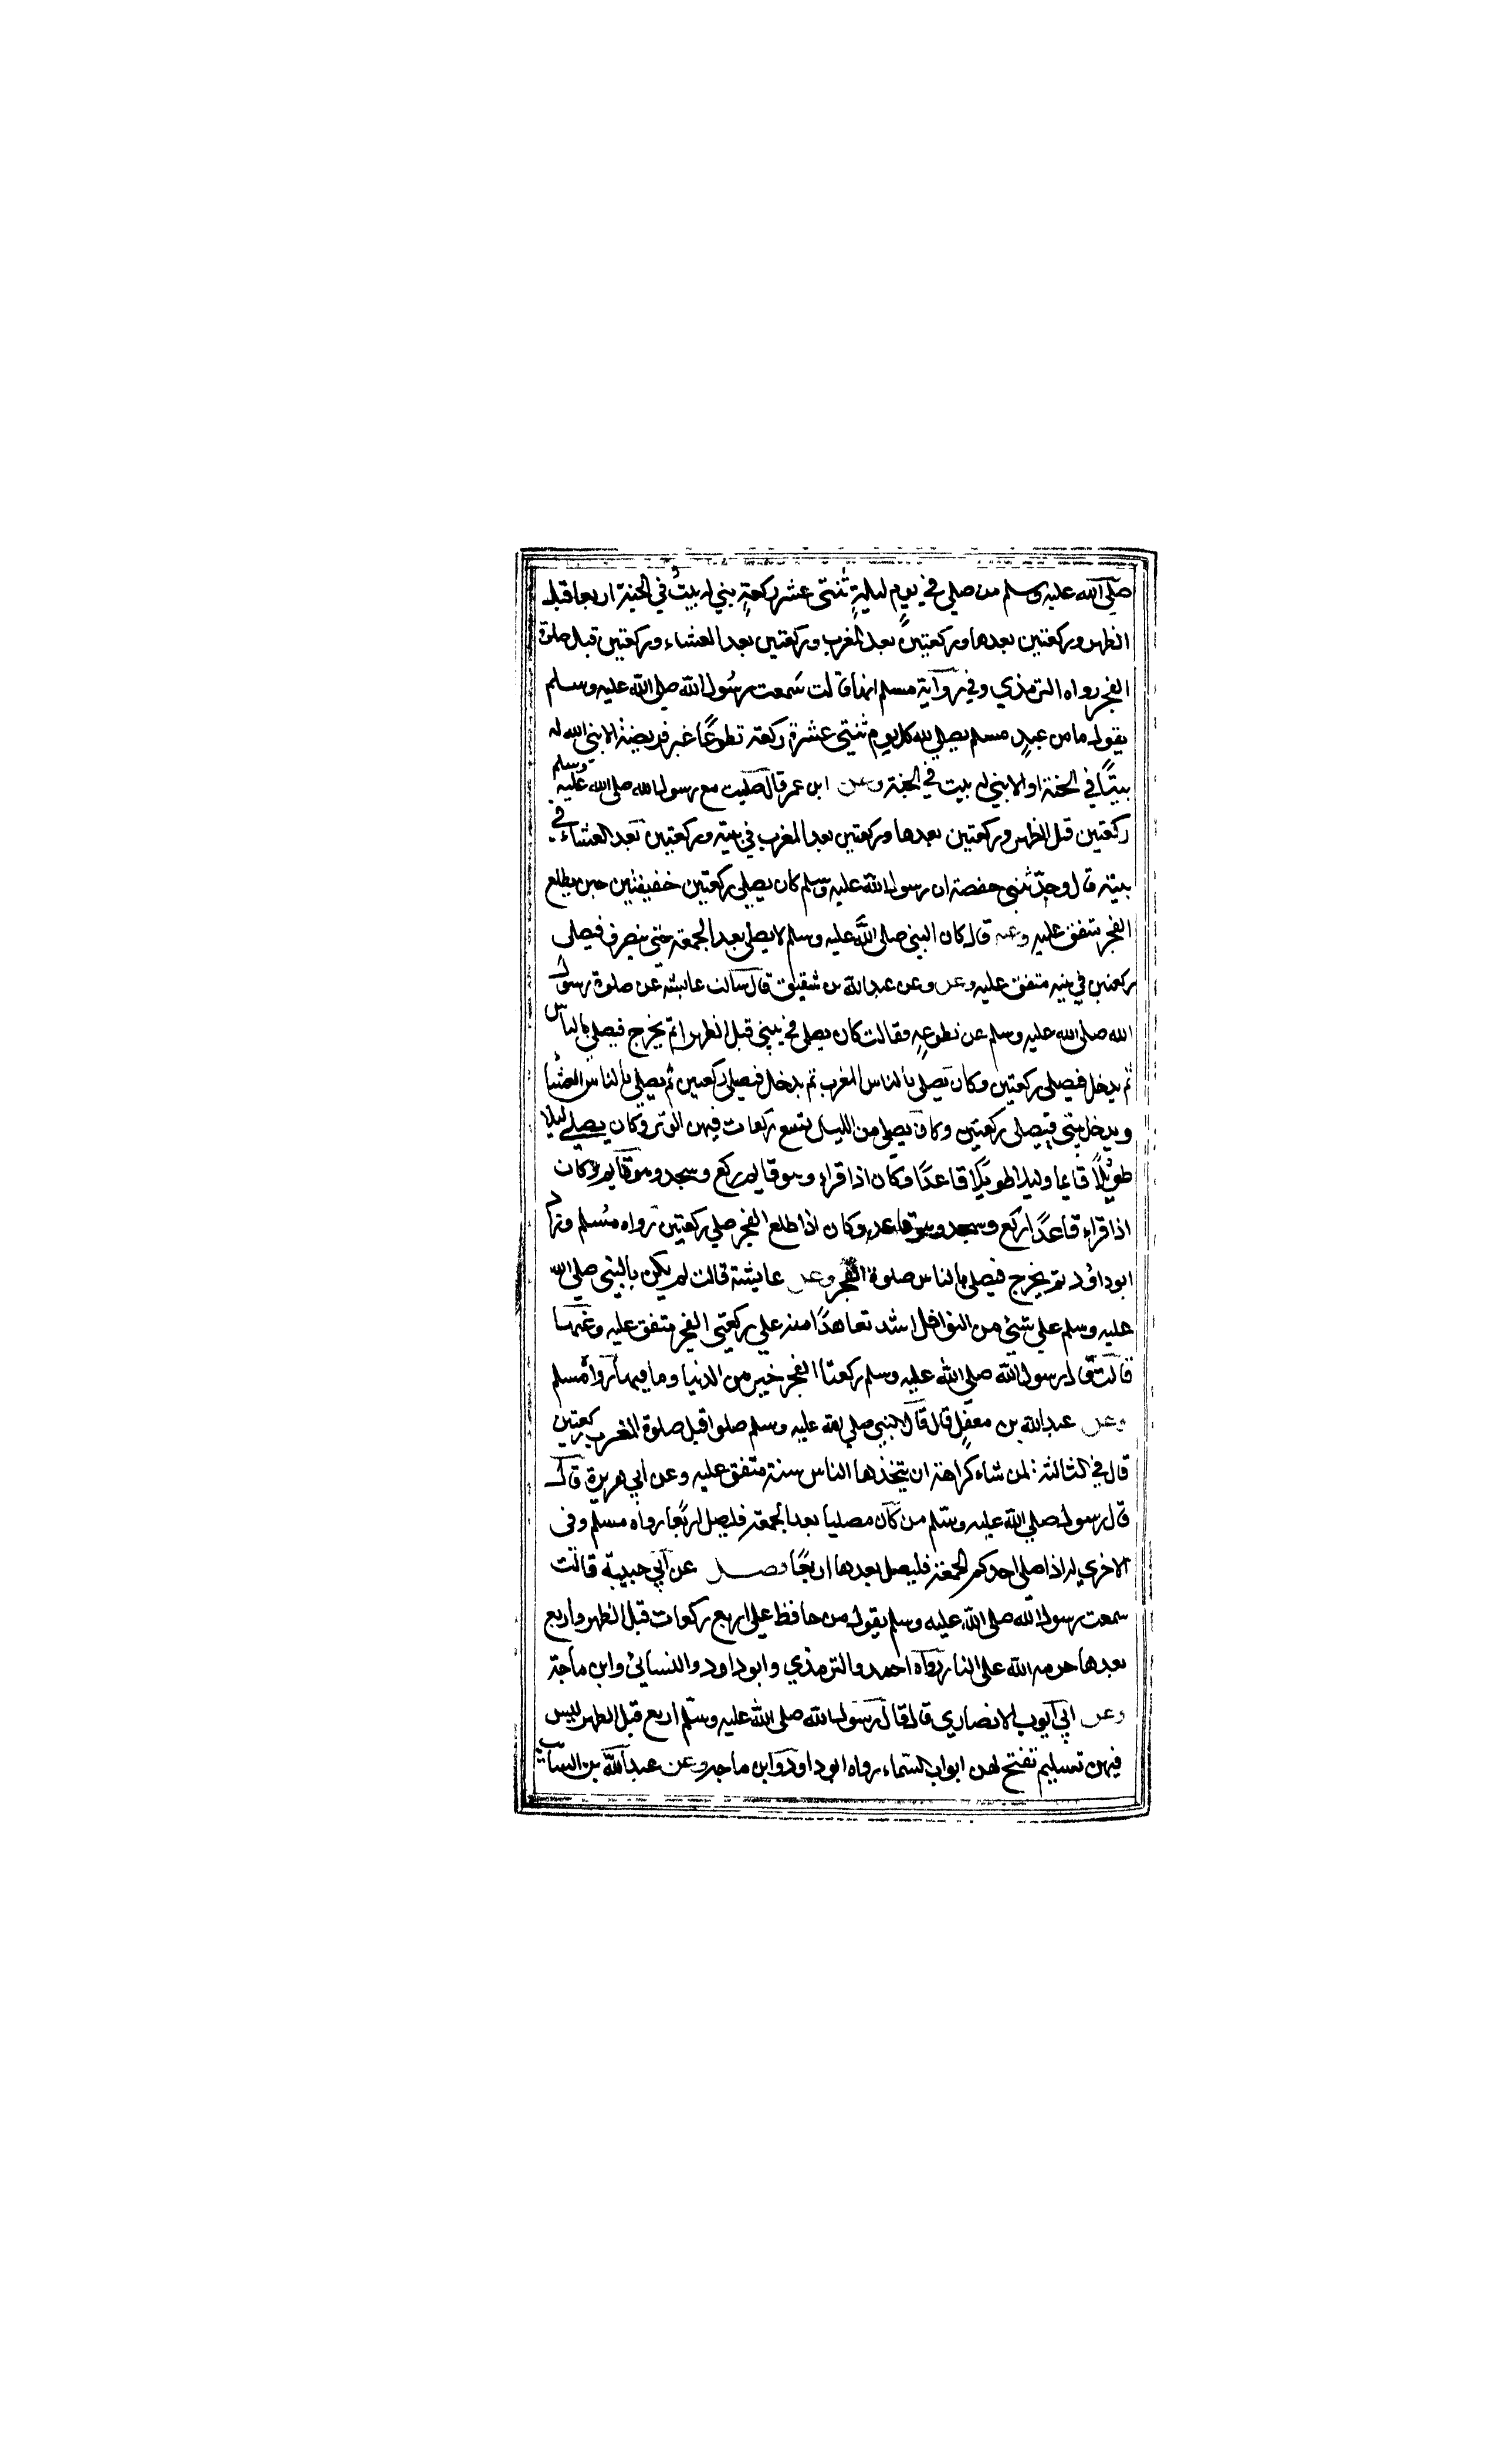 صلى الله عليه وسلم من صلي في يوم ليلةٍ ثنتى عشر ركعةٍ بني له بيتٌ في الجنة اربعا قبل
الظهر وركعتين بعدها وركعتين بعد المغرب وركعتين بعد العشاء وركعتين قبل صلوة
الفجر رواه الترمذي وفي رواية مسلم انها قالت سَمعت رسُول الله صلى الله عليه وسلم
يقول ما من عبدٍ مسلم يصلي لله كل يوم ثنتي عشرة ركعة تطوعًا غير فريضة الا بنى الله له
بيتًا في الجنة او الا بني له بيت في الجنة وعن ابن عمر قال صليت مع رسول الله صلى الله عليه وسلم
ركعتين قبل الظهر وركعتين بعدها وركعتين بعد المغرب في بيته وركعتين بعد العشاء في
بيته قال وحدّثني حفصة ان رسول الله عليه وسلم كان يصلي ركعتين خفيفتين حين يطلع
الفجر متفق عليه وعنه قال كان النبي صلى الله عليه وسلم لا يصلي بعد الجمعة حتى ينصرف فيصلى
ركعتين في بيته متفق عليه وعن وعن عبد الله بن شقيق قال سالت عايشة عن صلوة رسول
الله صلى الله عليه وسلم عن تطوعه فقالت كان يصلي في بيتي قبل الظهر اثم يخرج فيصلي بالناس
ثم يدخل فيصلي ركعتين وكان يصلي بالناس المغرب ثم يدخل فيصلي ركعتين ثم يصلي بالناس العشا
ويدخل بيتي فيصلى ركعتين وكان يصلي من الليل تسع ركعات فيهن الوتر وكان يصلي ليلا
طويلًا قايما وليلا طويلًا قاعدًا وكان اذا قراء وهو قايم ركع وسجد وهو قايم وكان
اذا قراء قاعدًا ركع وسجد وهو قاعد وكان اذا طلع الفجر صلي ركعتين رواه مُسلم وزاد
ابو داؤد ثم يخرج فيصلي بالناس صلوة الفجر وعن عايشة قالت لم يكن بالنبى صلي الله
عليه وسلم علي شيئ من النوافل اشد تعاهدًا منه علي ركعتي الفجر متفق عليه وعنها
قالت قال رسول الله صلي الله عليه وسلم ركعتا الفجر خير من الدنيا وما فيها رواه مسلم
وعن عبد الله بن مغفل قال قال النبي صلي الله عليه وسلم صلوا قبل صلوة المغرب ركعتين
قال في الثالثة لمن شاء كراهة ان يتخذها الناس سنة متفق عليه وعن ابي هريرة قال
قال رسول صلي الله عليه وسلم من كان مصليا بعد الجمعة فليصل اربعًا رواه مسلم وفى
الاخري له اذا صلي احدكم الجمعة فليصل بعدها اربعًا فصل عن ابي حبيبة قالت
سمعت رسول الله صلى الله عليه وسلم يقول من حافظ علي اربع ركعات قبل الظهر واربع
بعدها حرمه الله على النار رواه احمد والترمذي وابو داود والنسائى وابن ماجة
وعن ابي ايوب الانصاري قال قال رسول الله صلى الله عليه وسلم اربع قبل الظهر ليس
فيهن تسليم تفتح لهن ابواب السماء رواه ابو داود وابن ماجه وعن عبد الله بن السائب